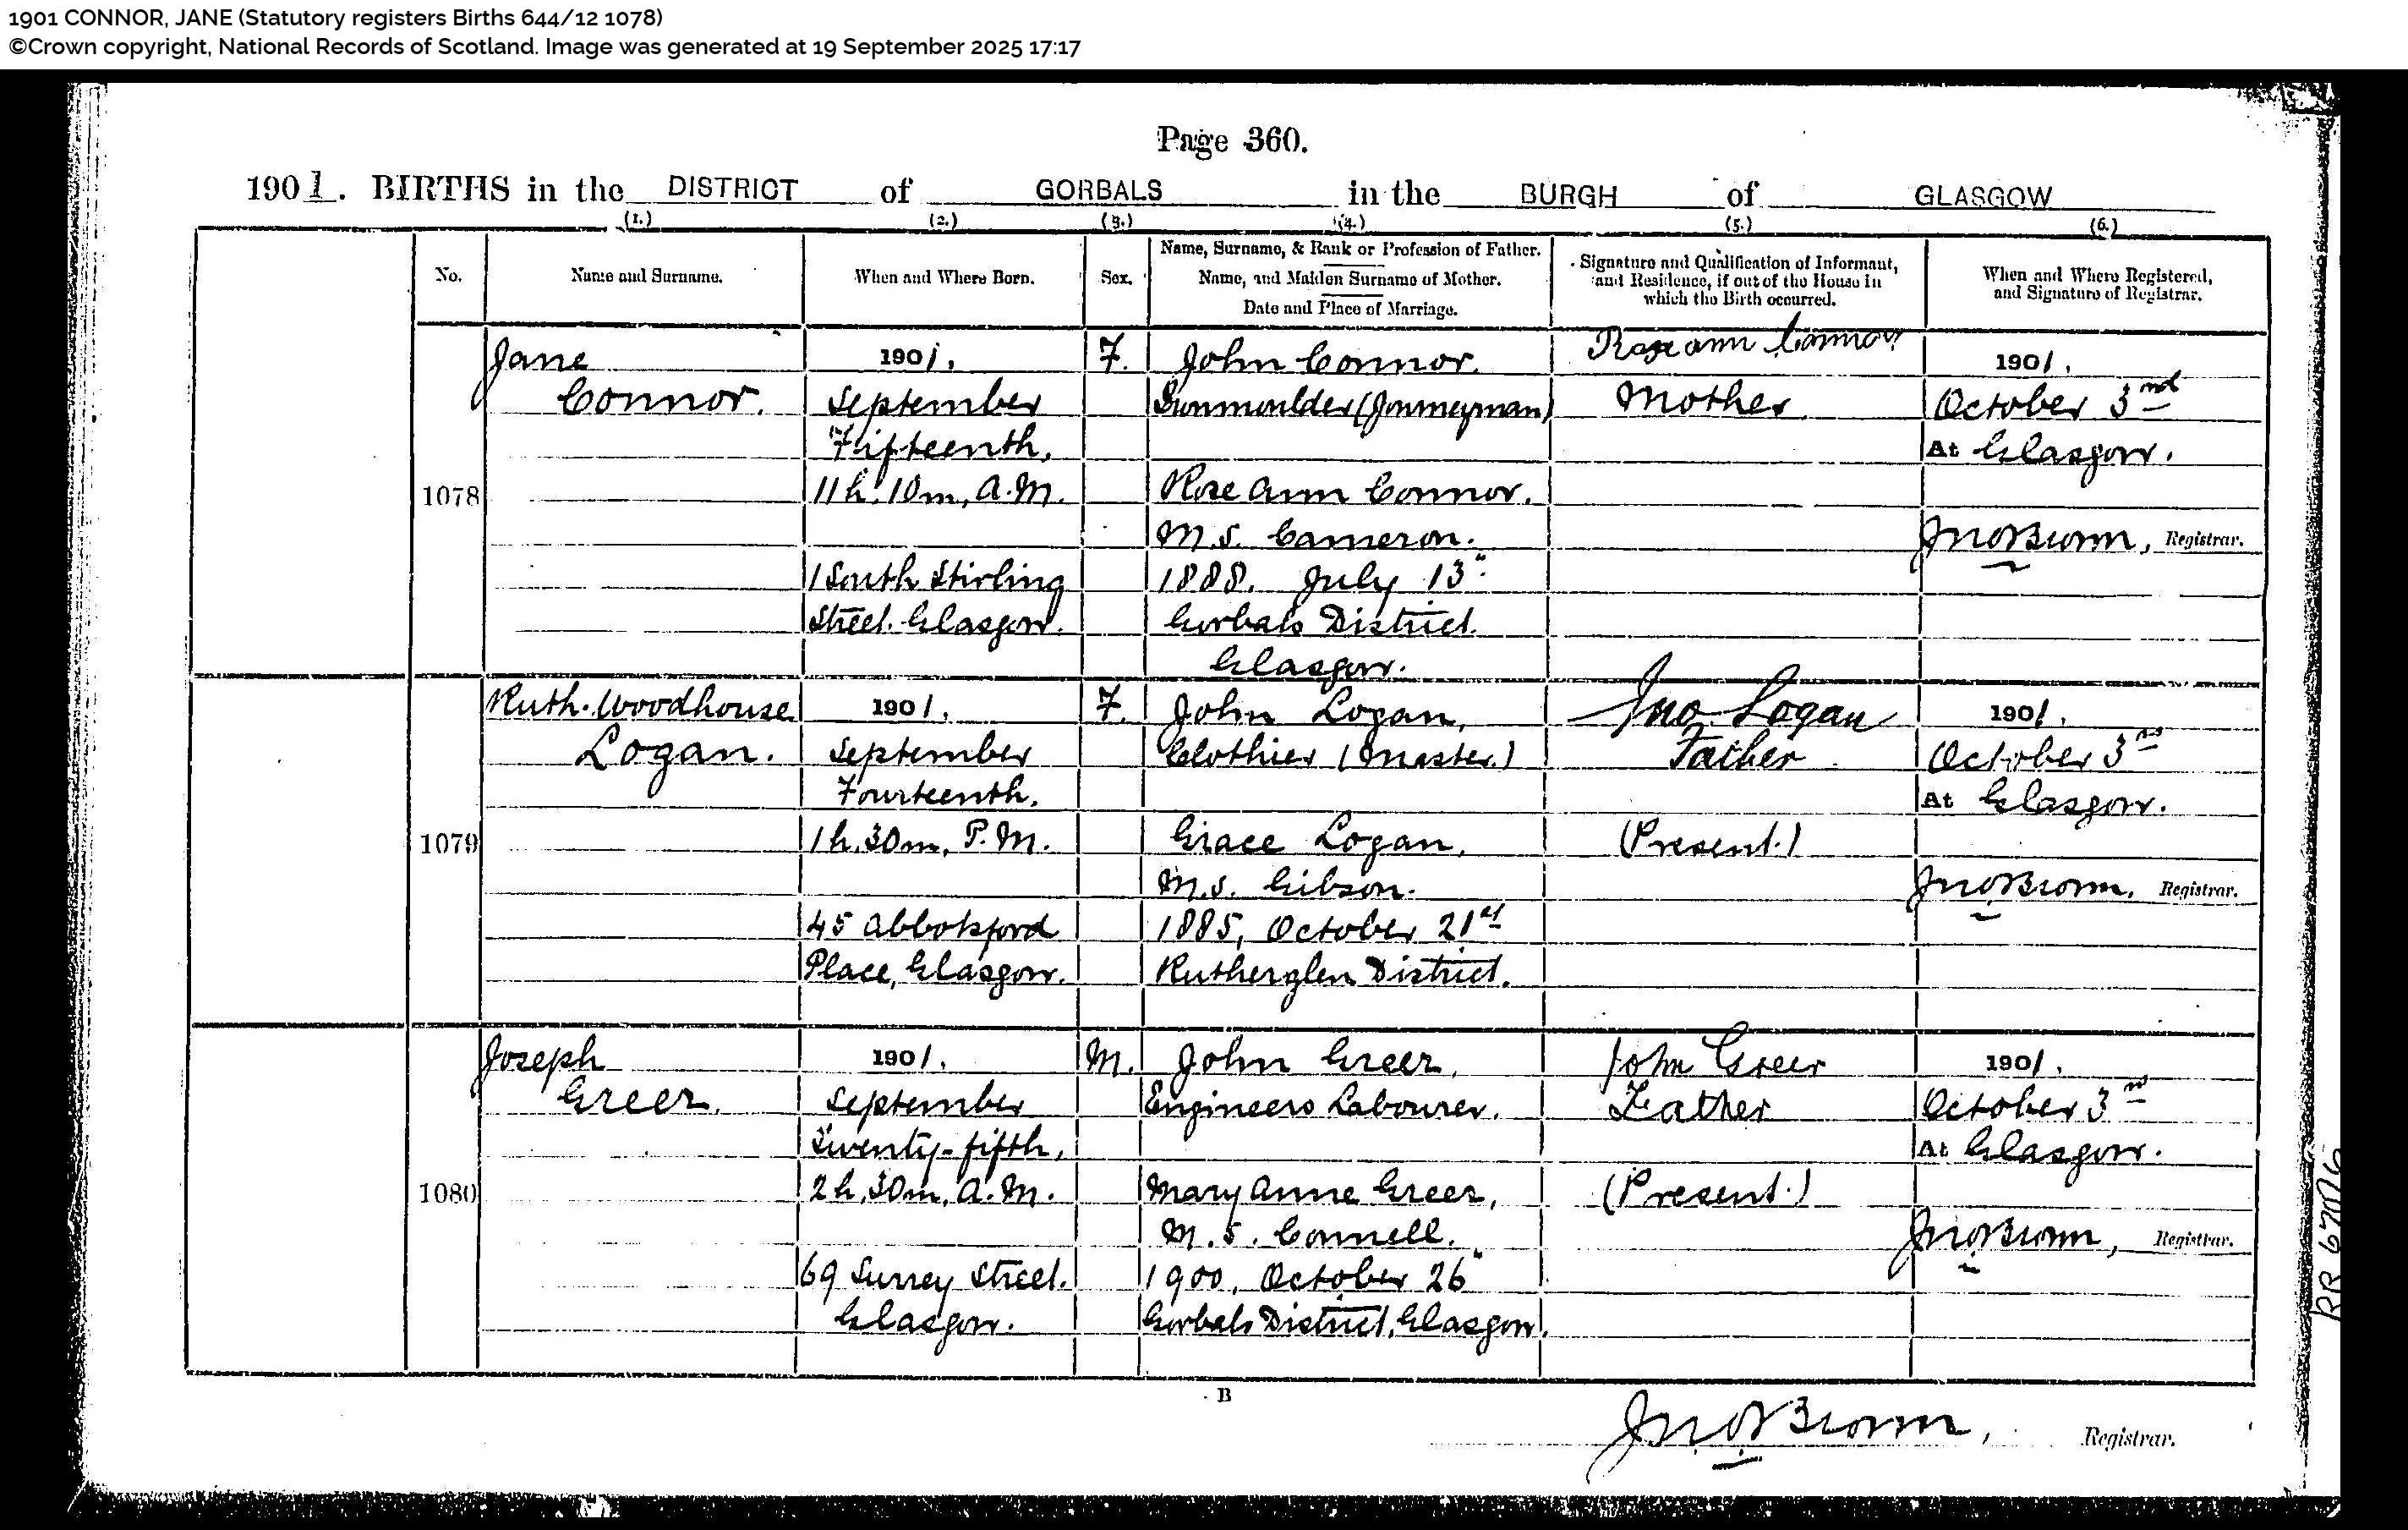 1901 CONNOR, JANE (Statutory registers Births 644/12 1078)
©Crown copyright, National Records of Scotland. Image was generated at 19 September 2025 17:17
Page 360.
1901. BIRTHS in the DISTRICT of GORBALS in the BURGH of GLASGOW
(1.) (2.) (3.) (4.) (5.) (6.)
No.
Name and Surname.
When and Where Born.
Sex.
Name, Surname, & Rank or Profession of Father.
Name, and Maiden Surname of Mother.
Date and Place of Marriage.
Signature and Qualification of Informant,
and Residence, if out of the House in
which the Birth occurred.
When and Where Registered,
and Signature of Registrar.
1078
Jane
Connor.
1901.
September
Fifteenth.
11h. 10m, A.M.
1 South Stirling
Street. Glasgow.
F.
John Connor.
Ironmoulder (Journeyman)
Rose Ann Connor.
M.S. Cameron.
1888. July 13"
Gorbals District.
Glasgow.
Rose ann Connor
Mother
1901.
October 3rd
At Glasgow.
Jno Brown, Registrar.
1079
Ruth. Woodhouse
Logan.
1901.
September
Fourteenth.
1h. 30m, P.M.
45 Abbotsford
Place, Glasgow.
F.
John Logan,
Clothier (Master)
Grace Logan,
M.S. Gibson.
1885, October 21st
Rutherglen District.
Jno. Logan
Father
(Present.)
1901.
October 3rd
At Glasgow.
Jno Brown, Registrar.
1080
Joseph
Greer.
1901.
September
Twenty-fifth,
2h. 30m, A.M.
69 Surrey Street.
Glasgow.
M.
John Greer,
Engineers Labourer.
Mary Anne Greer,
M.S. Connell.
1900, October 26"
Gorbals District, Glasgow.
John Greer
Father
(Present.)
1901.
October 3rd
At Glasgow.
Jno Brown, Registrar.
B
Jno Brown, Registrar.